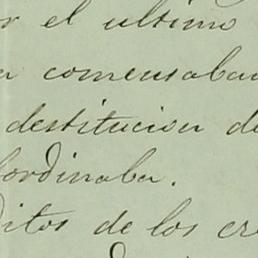 r el ultimo
a comensaban
destitucion de
fordinaba.
ditos de los cre